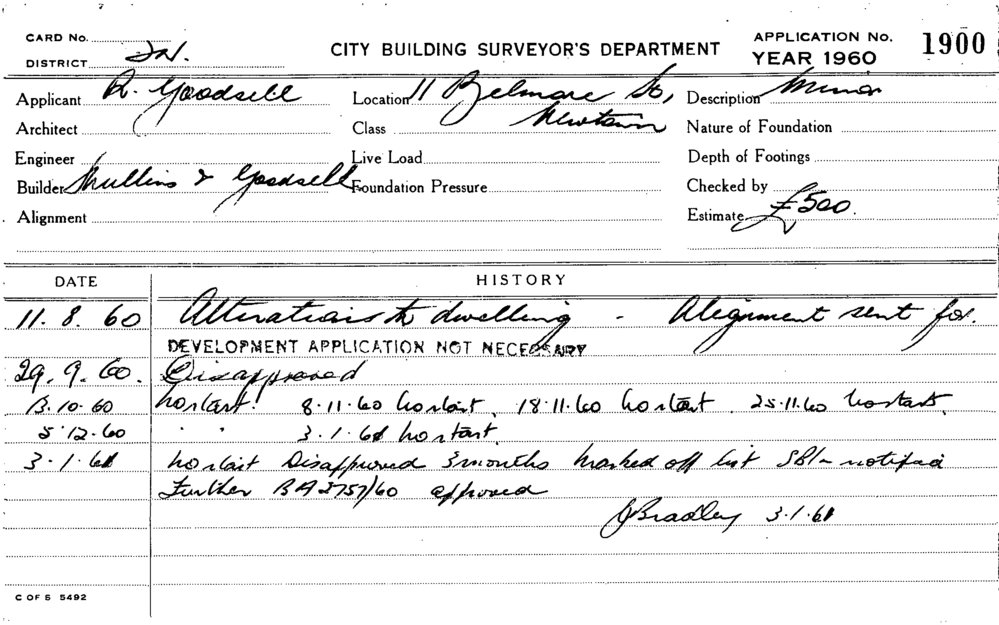 CARD No.
DISTRICT
CITY BUILDING SURVEYOR'S DEPARTMENT
APPLICATION No. 1900
YEAR 1960
Applicant R. Goodsell Location 11 Belmore St, Description Minor
Architect Class Newtown Nature of Foundation
Engineer Live Load Depth of Footings
Builder Mullins & Goodsell Foundation Pressure Checked by
Alignment Estimate £500.
DATE HISTORY
11. 8. 60 Alterations to dwelling - Alignment sent for.
DEVELOPMENT APPLICATION NOT NECESSARY
29. 9. 60. Disapproved
13.10.60 No start! 8.11.60 No start. 18.11.60 No start. 25.11.60 No start.
5.12.60 " " 3.1.61 No start.
3.1.61 No start Disapproved 3 months Marked off list notified
Further BA 2757/60 approved
Bradley 3.1.61
C OF S 5492